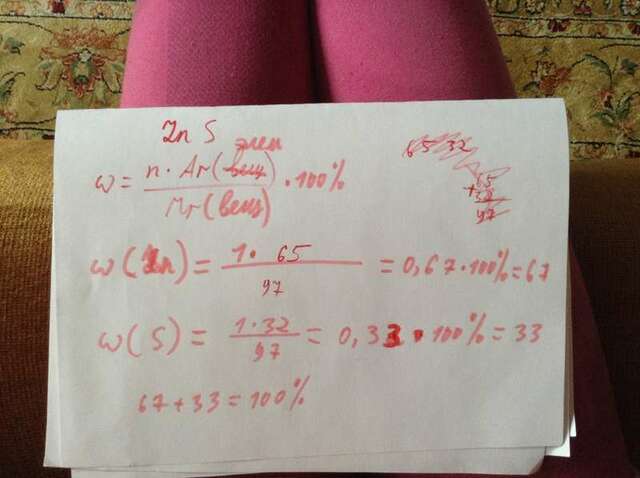 Zn S
элем
w = n · Ar (вещ) / Mr (вещ) · 100%
65 32
65
+ 32
97
w (Zn) = 1 · 65 / 97 = 0,67 · 100% = 67
w (S) = 1 · 32 / 97 = 0,33 · 100% = 33
67 + 33 = 100%